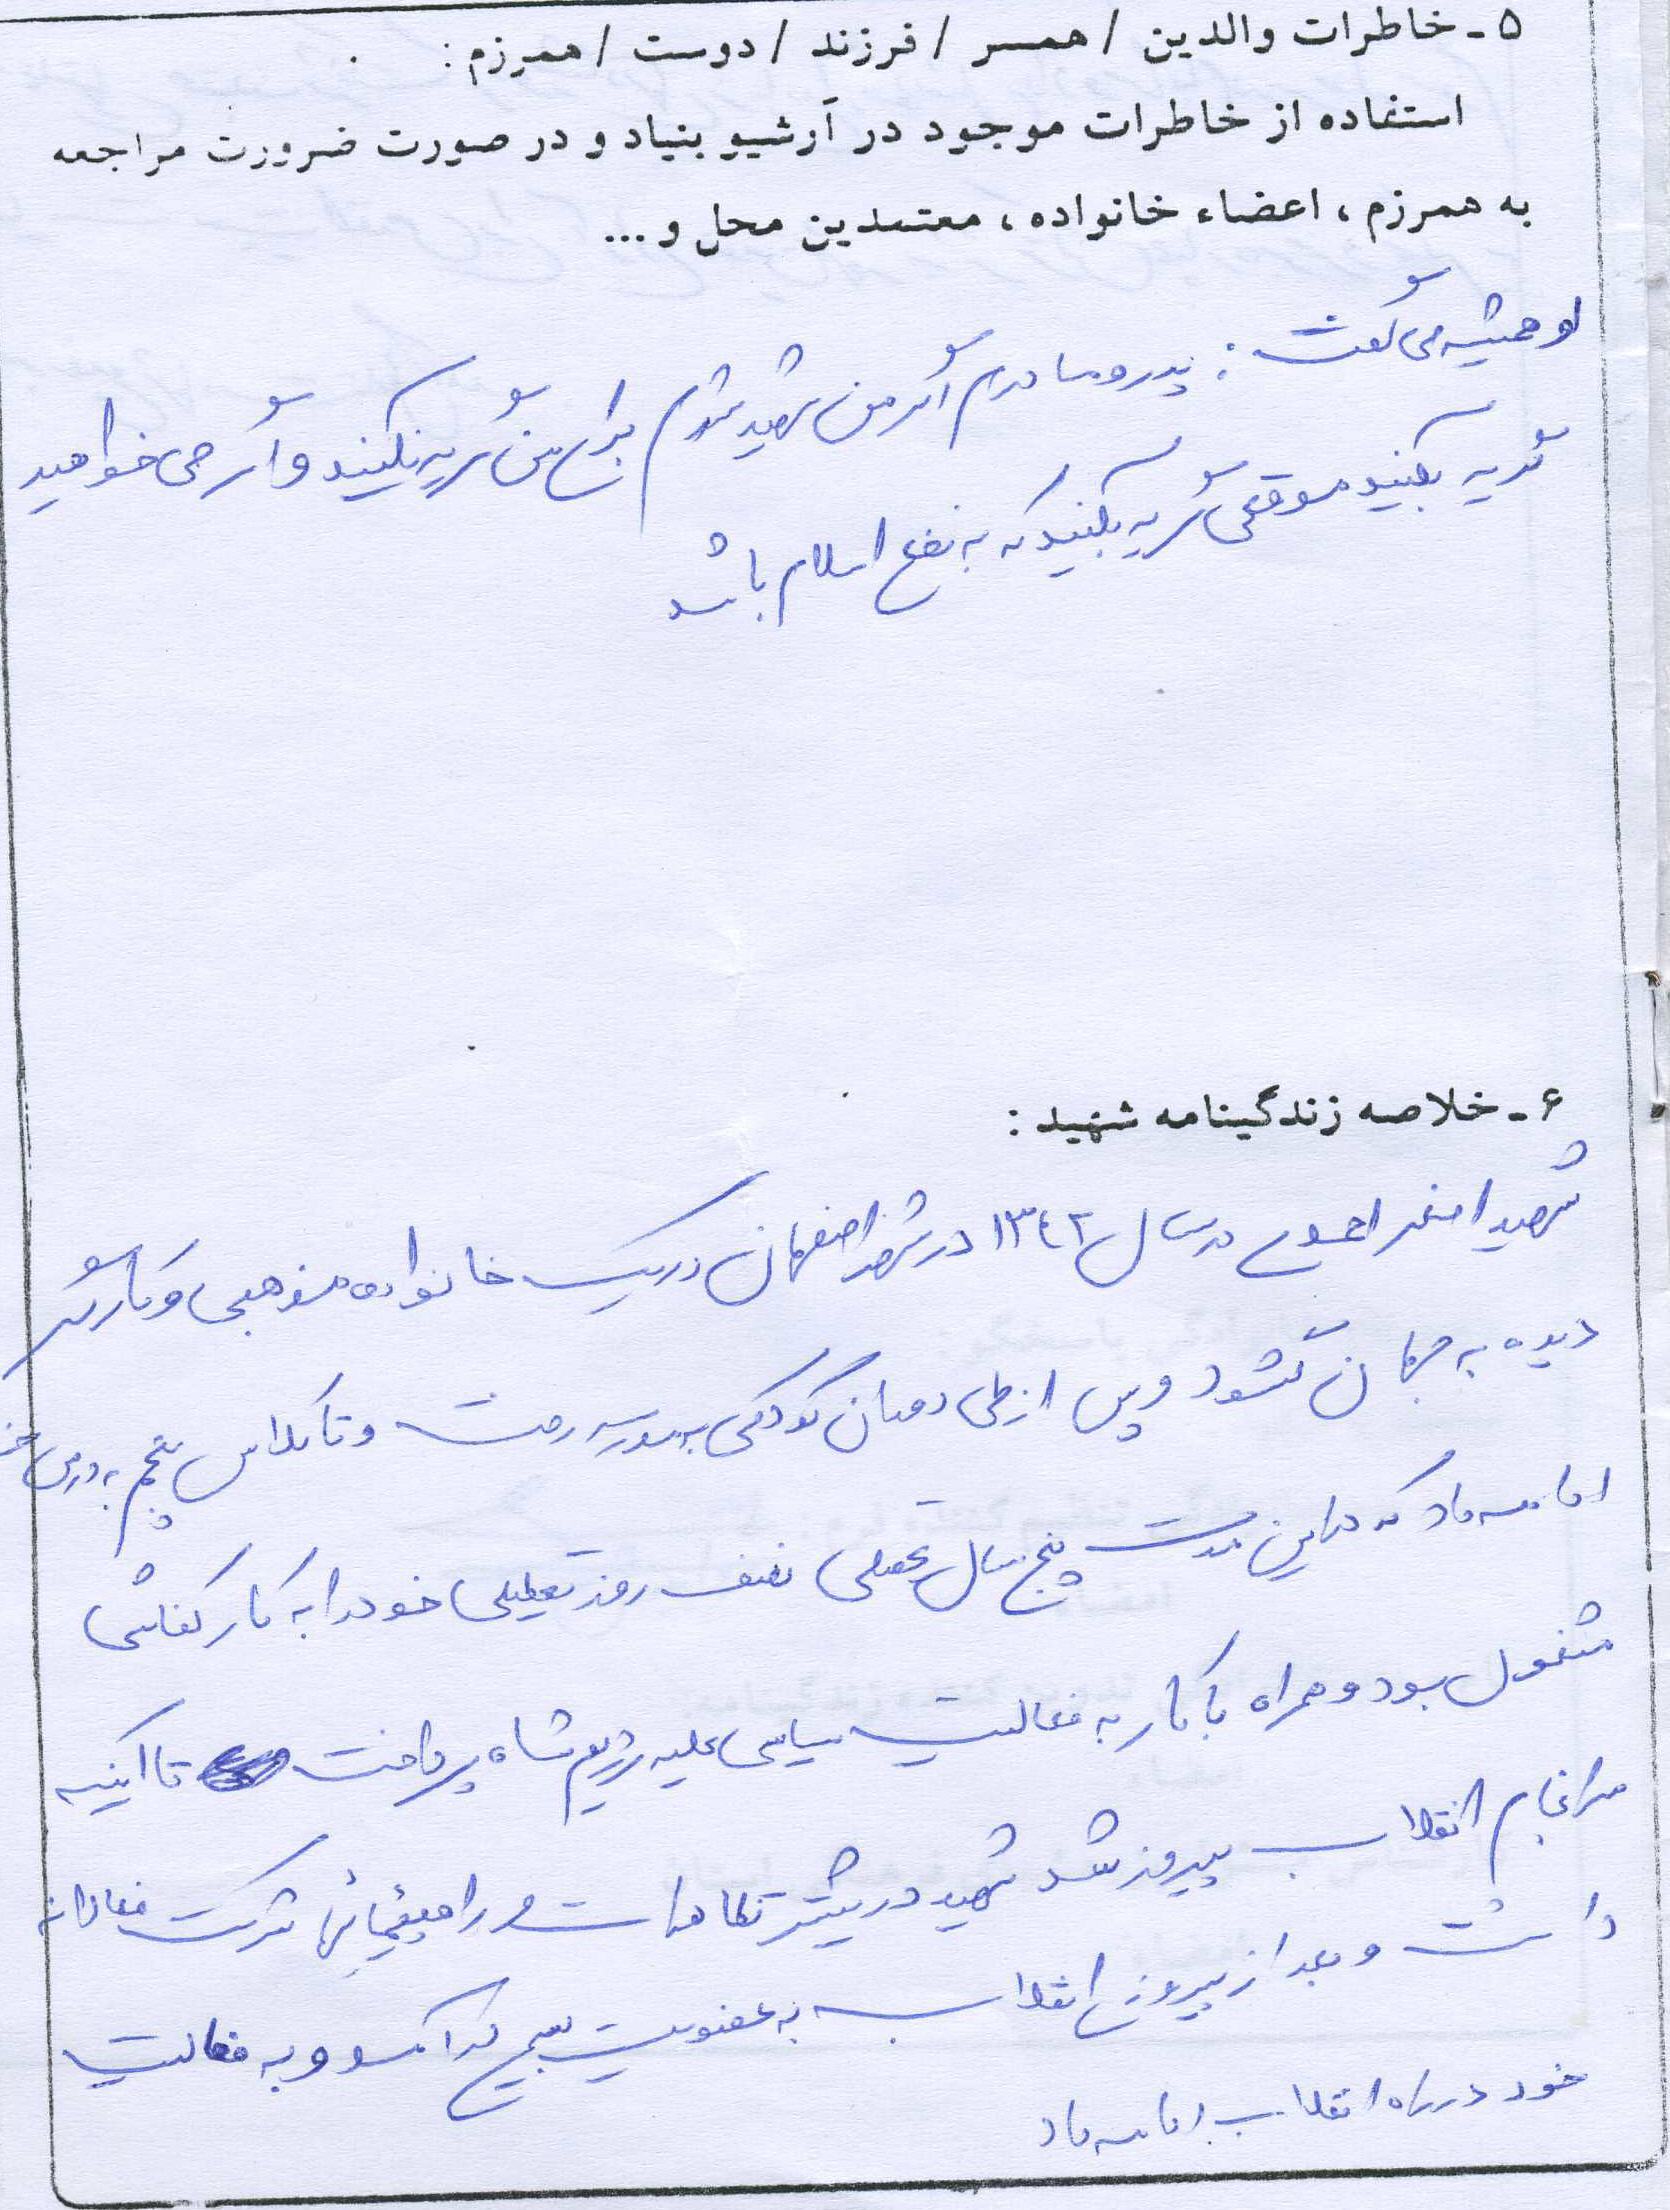 ۵ - خاطرات والدین / همسر / فرزند / دوست / همرزم :
استفاده از خاطرات موجود در آرشیو بنیاد و در صورت ضرورت مراجعه
به همرزم ، اعضاء خانواده ، معتمدین محل و ...
او همیشه می گفت : پدر و مادرم اگر من شهید شدم برای من گریه نکنید و اگر می خواهید
گریه بکنید موقعی گریه بکنید که به نفع اسلام باشد
۶ - خلاصه زندگینامه شهید :
شهید اصغر احمدی در سال ۱۳۴۲ در شهر اصفهان در یک خانواده مذهبی و کارگر
دیده به جهان گشود و پس از طی دوران کودکی به مدرسه رفت و تا کلاس پنجم به درس
ادامه داد که در این مدت پنج سال تحصیلی نصف روز تعطیلی خود را به کار کفاشی
مشغول بود و همراه با کار به فعالیت سیاسی علیه رژیم شاه پرداخت تا اینکه
سرانجام انقلاب پیروز شد شهید در بیشتر تظاهرات و راهپیمائیها شرکت فعالانه
داشت و بعد از پیروزی انقلاب به عضویت بسیج درآمد و به فعالیت
خود در راه انقلاب ادامه داد